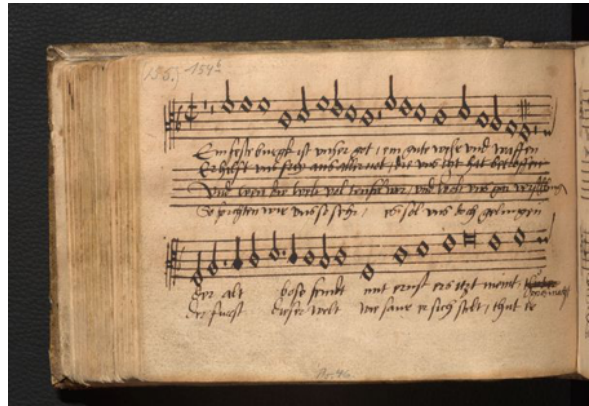 Ein feste burgk ist unser got, ein gute wehr und waffen
Er hilft uns frey aus aller not, die uns itzt hat betroffen
Und wen die welt vol teufel wer, und wolt uns gar
So furchten wir uns so sehr, es sol uns doch gelingen
der alt bose feindt mit ernst ers itzt meint,
der furst dieser welt wie saur er sich stelt, thut er